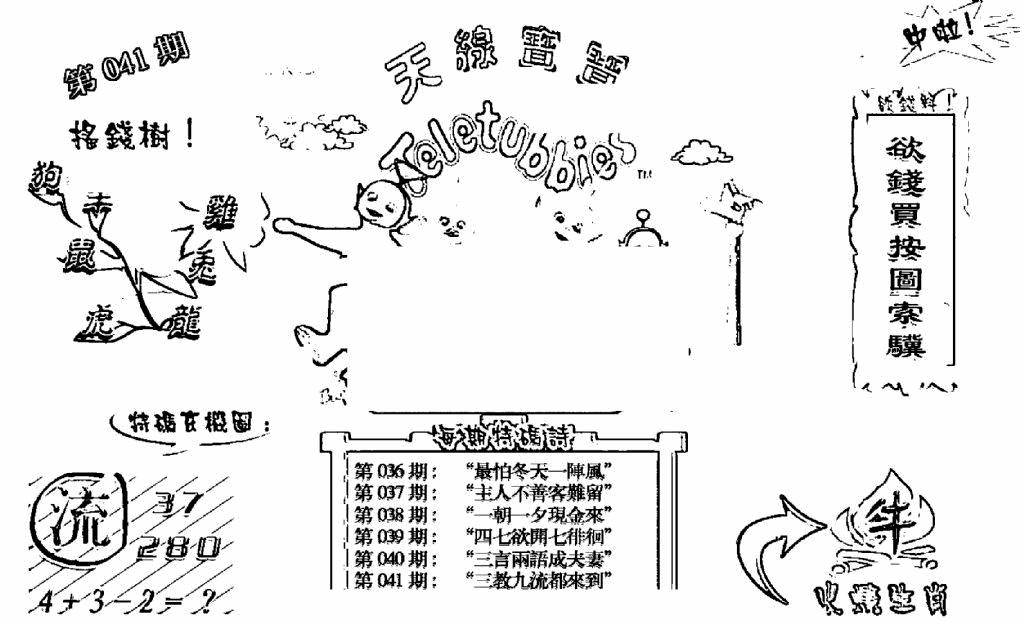 第 041 期
天線寶寶
中啦!
Teletubbies
TM
搖錢樹!
狗
雞
鼠
兔
虎
龍
欲錢買按圖索驥
特碼玄機圖:
流
37
280
4+3-2=?
每期特碼詩
第 036 期: “最怕冬天一陣風”
第 037 期: “主人不善客難留”
第 038 期: “一朝一夕現金來”
第 039 期: “四七欲開七徘徊”
第 040 期: “三言兩語成夫妻”
第 041 期: “三教九流都來到”
牛
火燒生肖